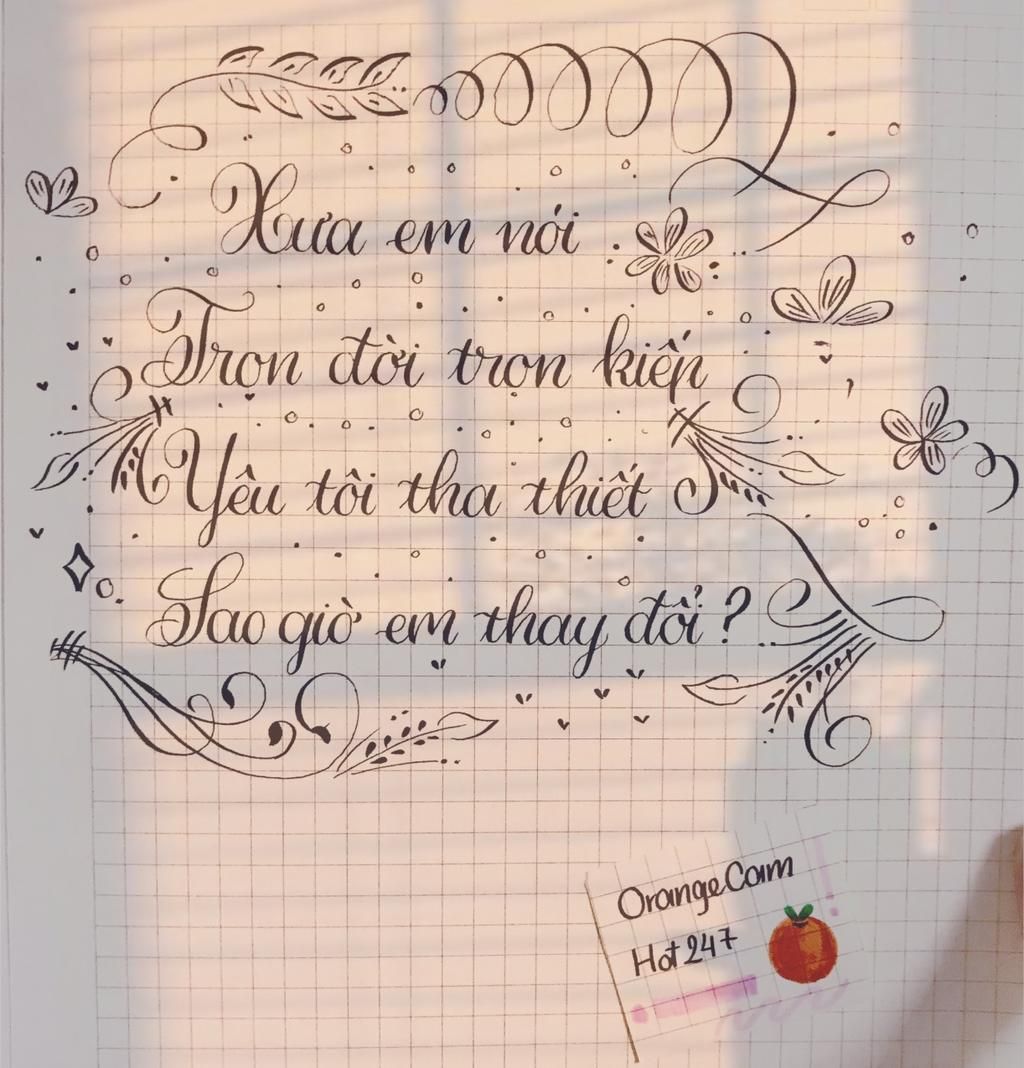 Xưa em nói
Trọn đời trọn kiếp
Yêu tôi tha thiết
Sao giờ em thay đổi ?
OrangeCam
Hot 247